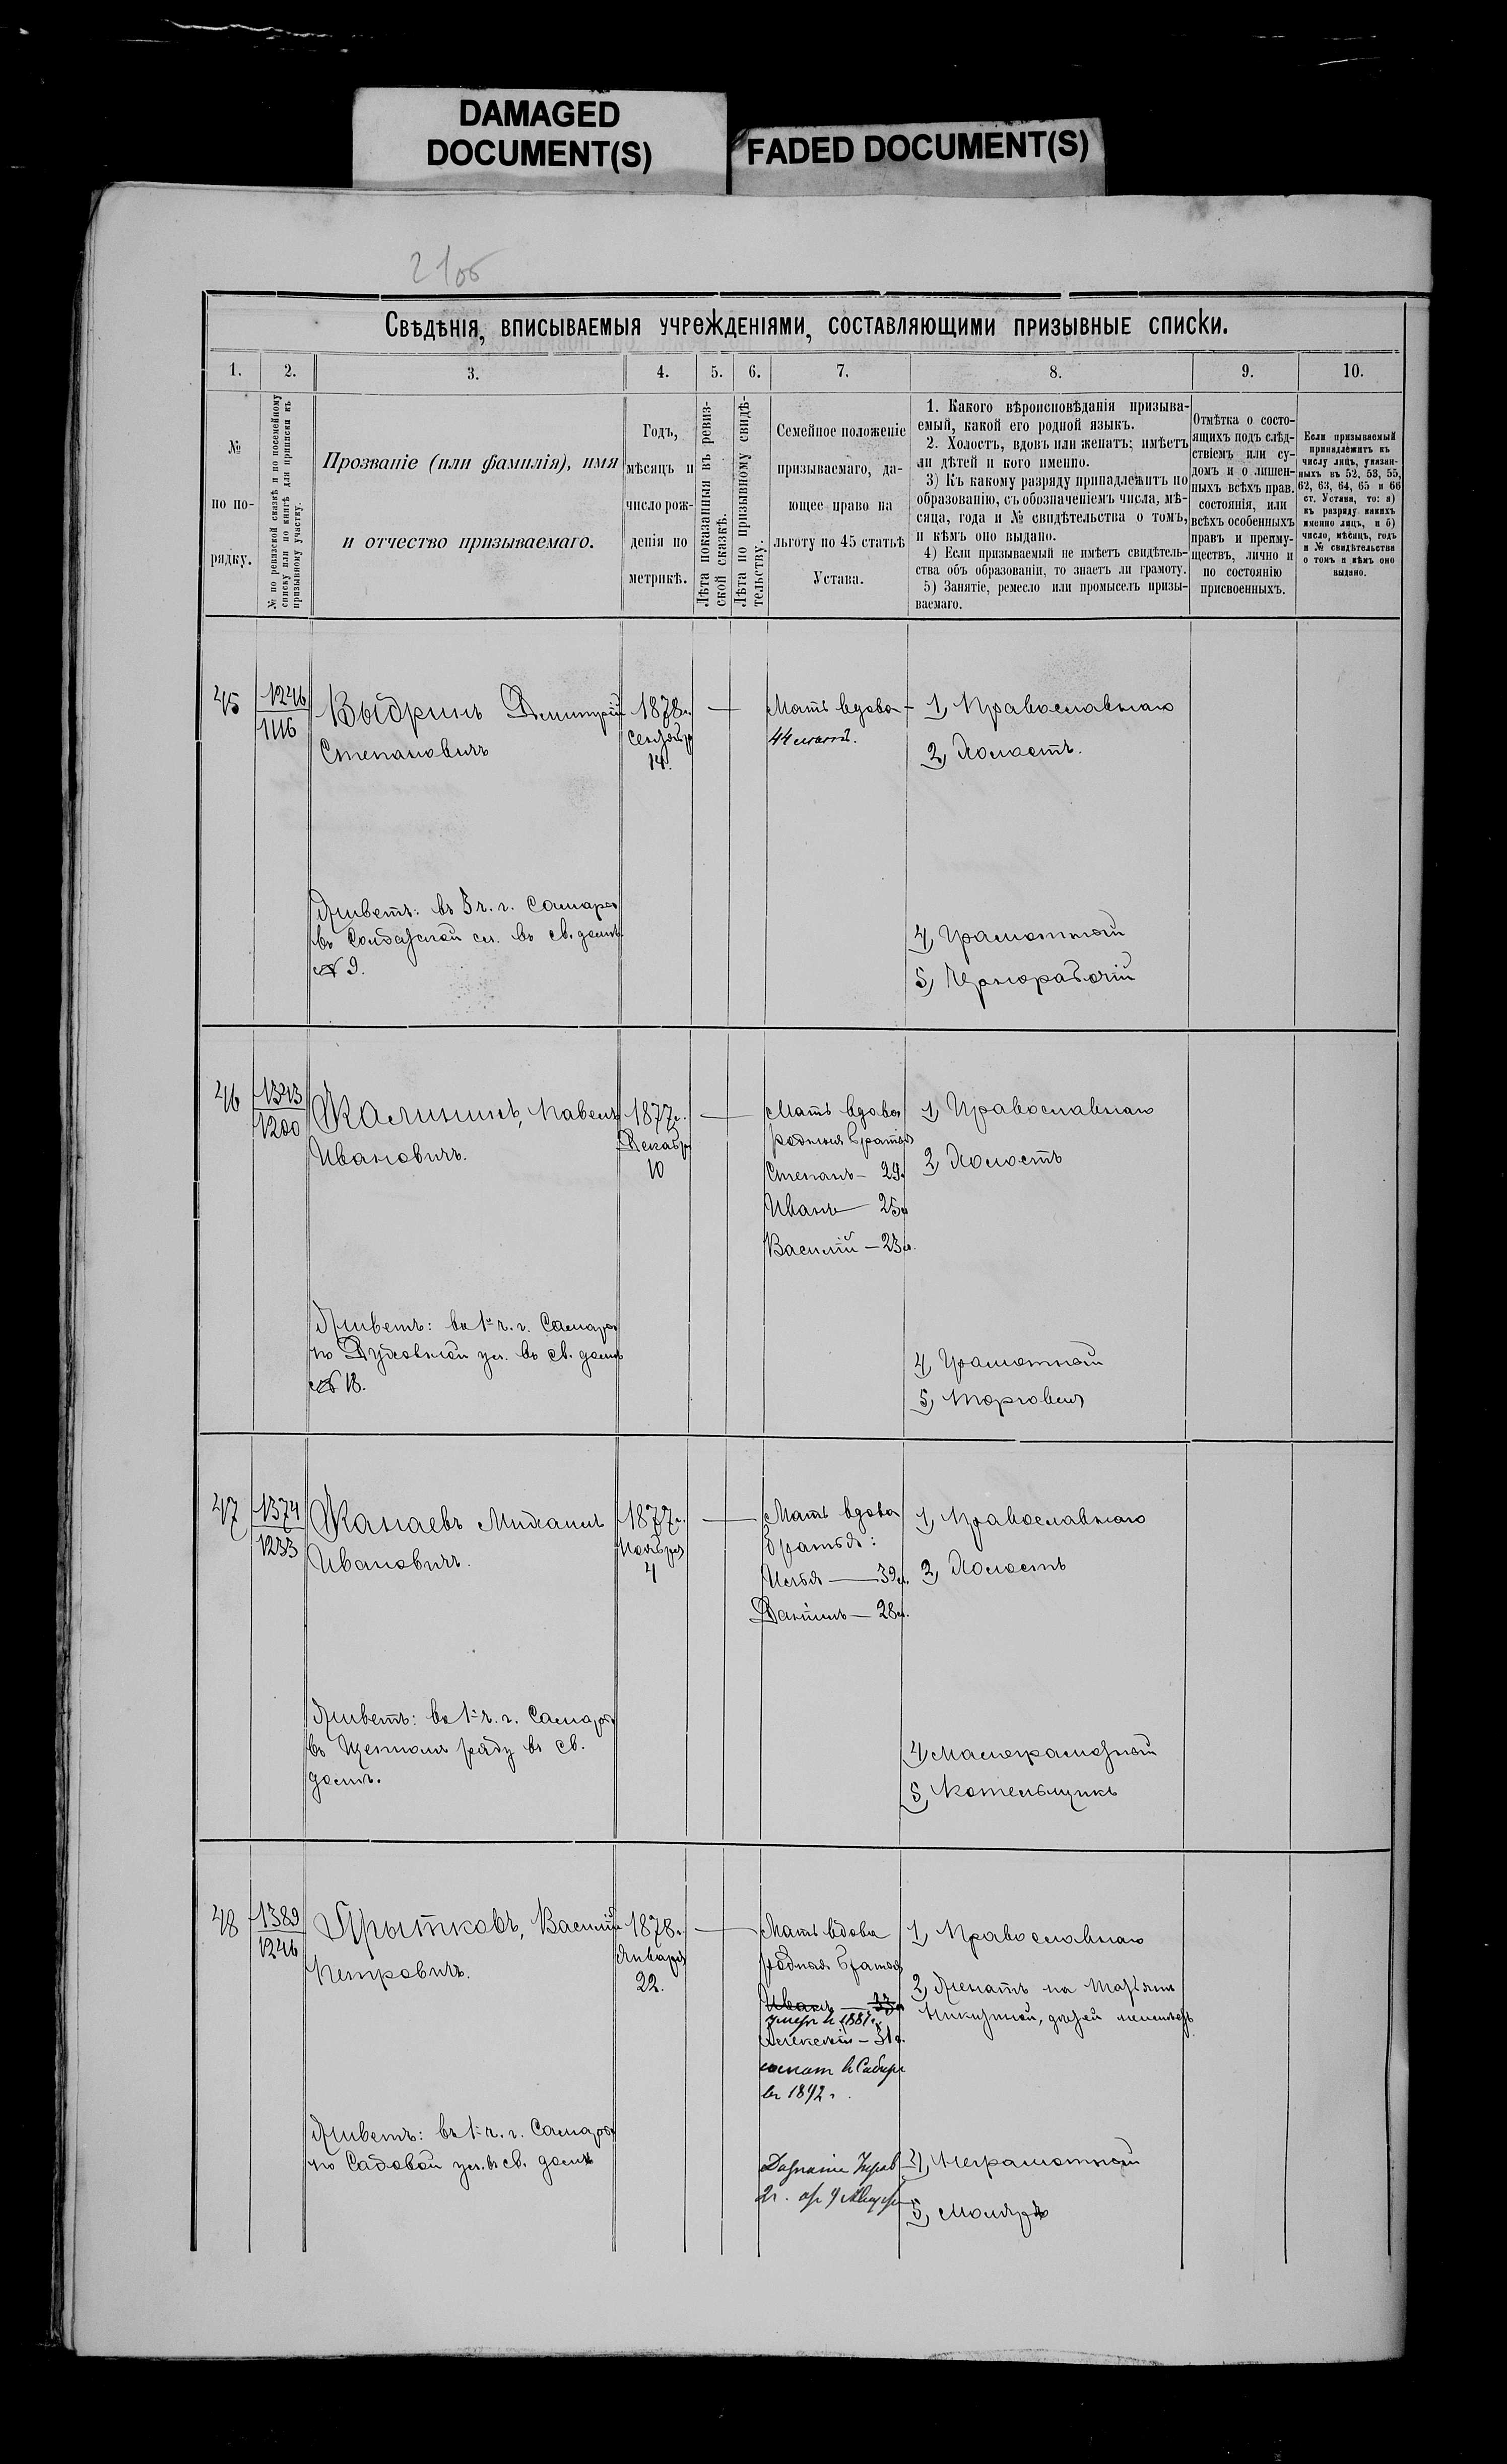 DAMAGED
DOCUMENT(S)
FADED DOCUMENT(S)
Свѣдѣнія, вписываемыя учрежденіями, составляющими призывные списки.
1.
2.
3.
4.
5.
6.
7.
8.
9.
10.
№
по по-
рядку.
№ по ревизской сказкѣ и по посемейному
списку или по книгѣ для приписки къ
призывному участку.
Прозваніе (или фамилія), имя
и отчество призываемаго.
Годъ,
мѣсяцъ и
число рож-
денія по
метрикѣ.
Лѣта показанныя въ ревиз-
ской сказкѣ.
Лѣта по призывному свидѣ-
тельству.
Семейное положеніе
призываемаго, да-
ющее право на
льготу по 45 статьѣ
Устава.
1. Какого вѣроисповѣданія призыва-
емый, какой его родной языкъ.
2. Холостъ, вдовъ или женатъ; имѣетъ
ли дѣтей и кого именно.
3) Къ какому разряду принадлежитъ по
образованію, съ обозначеніемъ числа, мѣ-
сяца, года и № свидѣтельства о томъ,
и кѣмъ оно выдано.
4) Если призываемый не имѣетъ свидѣтель-
ства объ образованіи, то знаетъ ли грамоту.
5) Занятіе, ремесло или промыселъ призы-
ваемаго.
Отмѣтка о состо-
ящихъ подъ слѣд-
ствіемъ или су-
домъ и о лишен-
ныхъ всѣхъ прав.
состоянія, или
всѣхъ особенныхъ
правъ и преиму-
ществъ, лично и
по состоянію
присвоенныхъ.
Если призываемый
принадлежитъ къ
числу лицъ, указан-
ныхъ въ 52, 53, 55,
62, 63, 64, 65 и 66
ст. Устава, то: а)
къ разряду какихъ
именно лицъ, и б)
число, мѣсяцъ, годъ
и № свидѣтельства
о томъ и кѣмъ оно
выдано.
45
1246
1116
Выдринъ Дмитрій
Степановичъ
1878г.
Сентября
14.
Мать вдова
44 лѣтъ.
1, Православнаго
2, Холостъ.
Живетъ: въ 3 ч. г. Самары
въ Солдатской сл. въ св. домѣ
№ 9.
4, Грамотный
5, Чернорабочій
46
1343
1200
Калининъ, Павелъ
Ивановичъ.
1877г.
Декабря
10
Мать вдова
родныя братья
Степанъ - 29.
Иванъ — 25л
Василій - 23л.
1, Православнаго
2, Холостъ
Живетъ: въ 1й ч. г. Самары
по Духовной ул. въ св. домѣ
№ 18.
4, Грамотный
5, Торговля
47
1374
1233
Канаевъ Михаилъ
Ивановичъ.
1877г.
Ноября
4
Мать вдова
братья:
Илья — 39л.
Данилъ — 28л.
1, Православнаго
2, Холостъ
Живетъ: въ 1й ч. г. Самары
въ Щепномъ ряду въ св.
домѣ.
4, Малограмотный
5, Котельщикъ
48
1389
1246
Прытковъ, Василій
Петровичъ.
1878г.
Января
22.
Мать вдова
родныя братья
Иванъ
умеръ в 1881 г.
Алексей - 31л.
сослан в Сибирь
в 1892 г.
1, Православнаго
2, Женатъ на
Никитиной, дѣтей
Живетъ: въ 1й ч. г. Самары
по Садовой ул. въ св. домѣ
4, Неграмотный
5, Маляръ